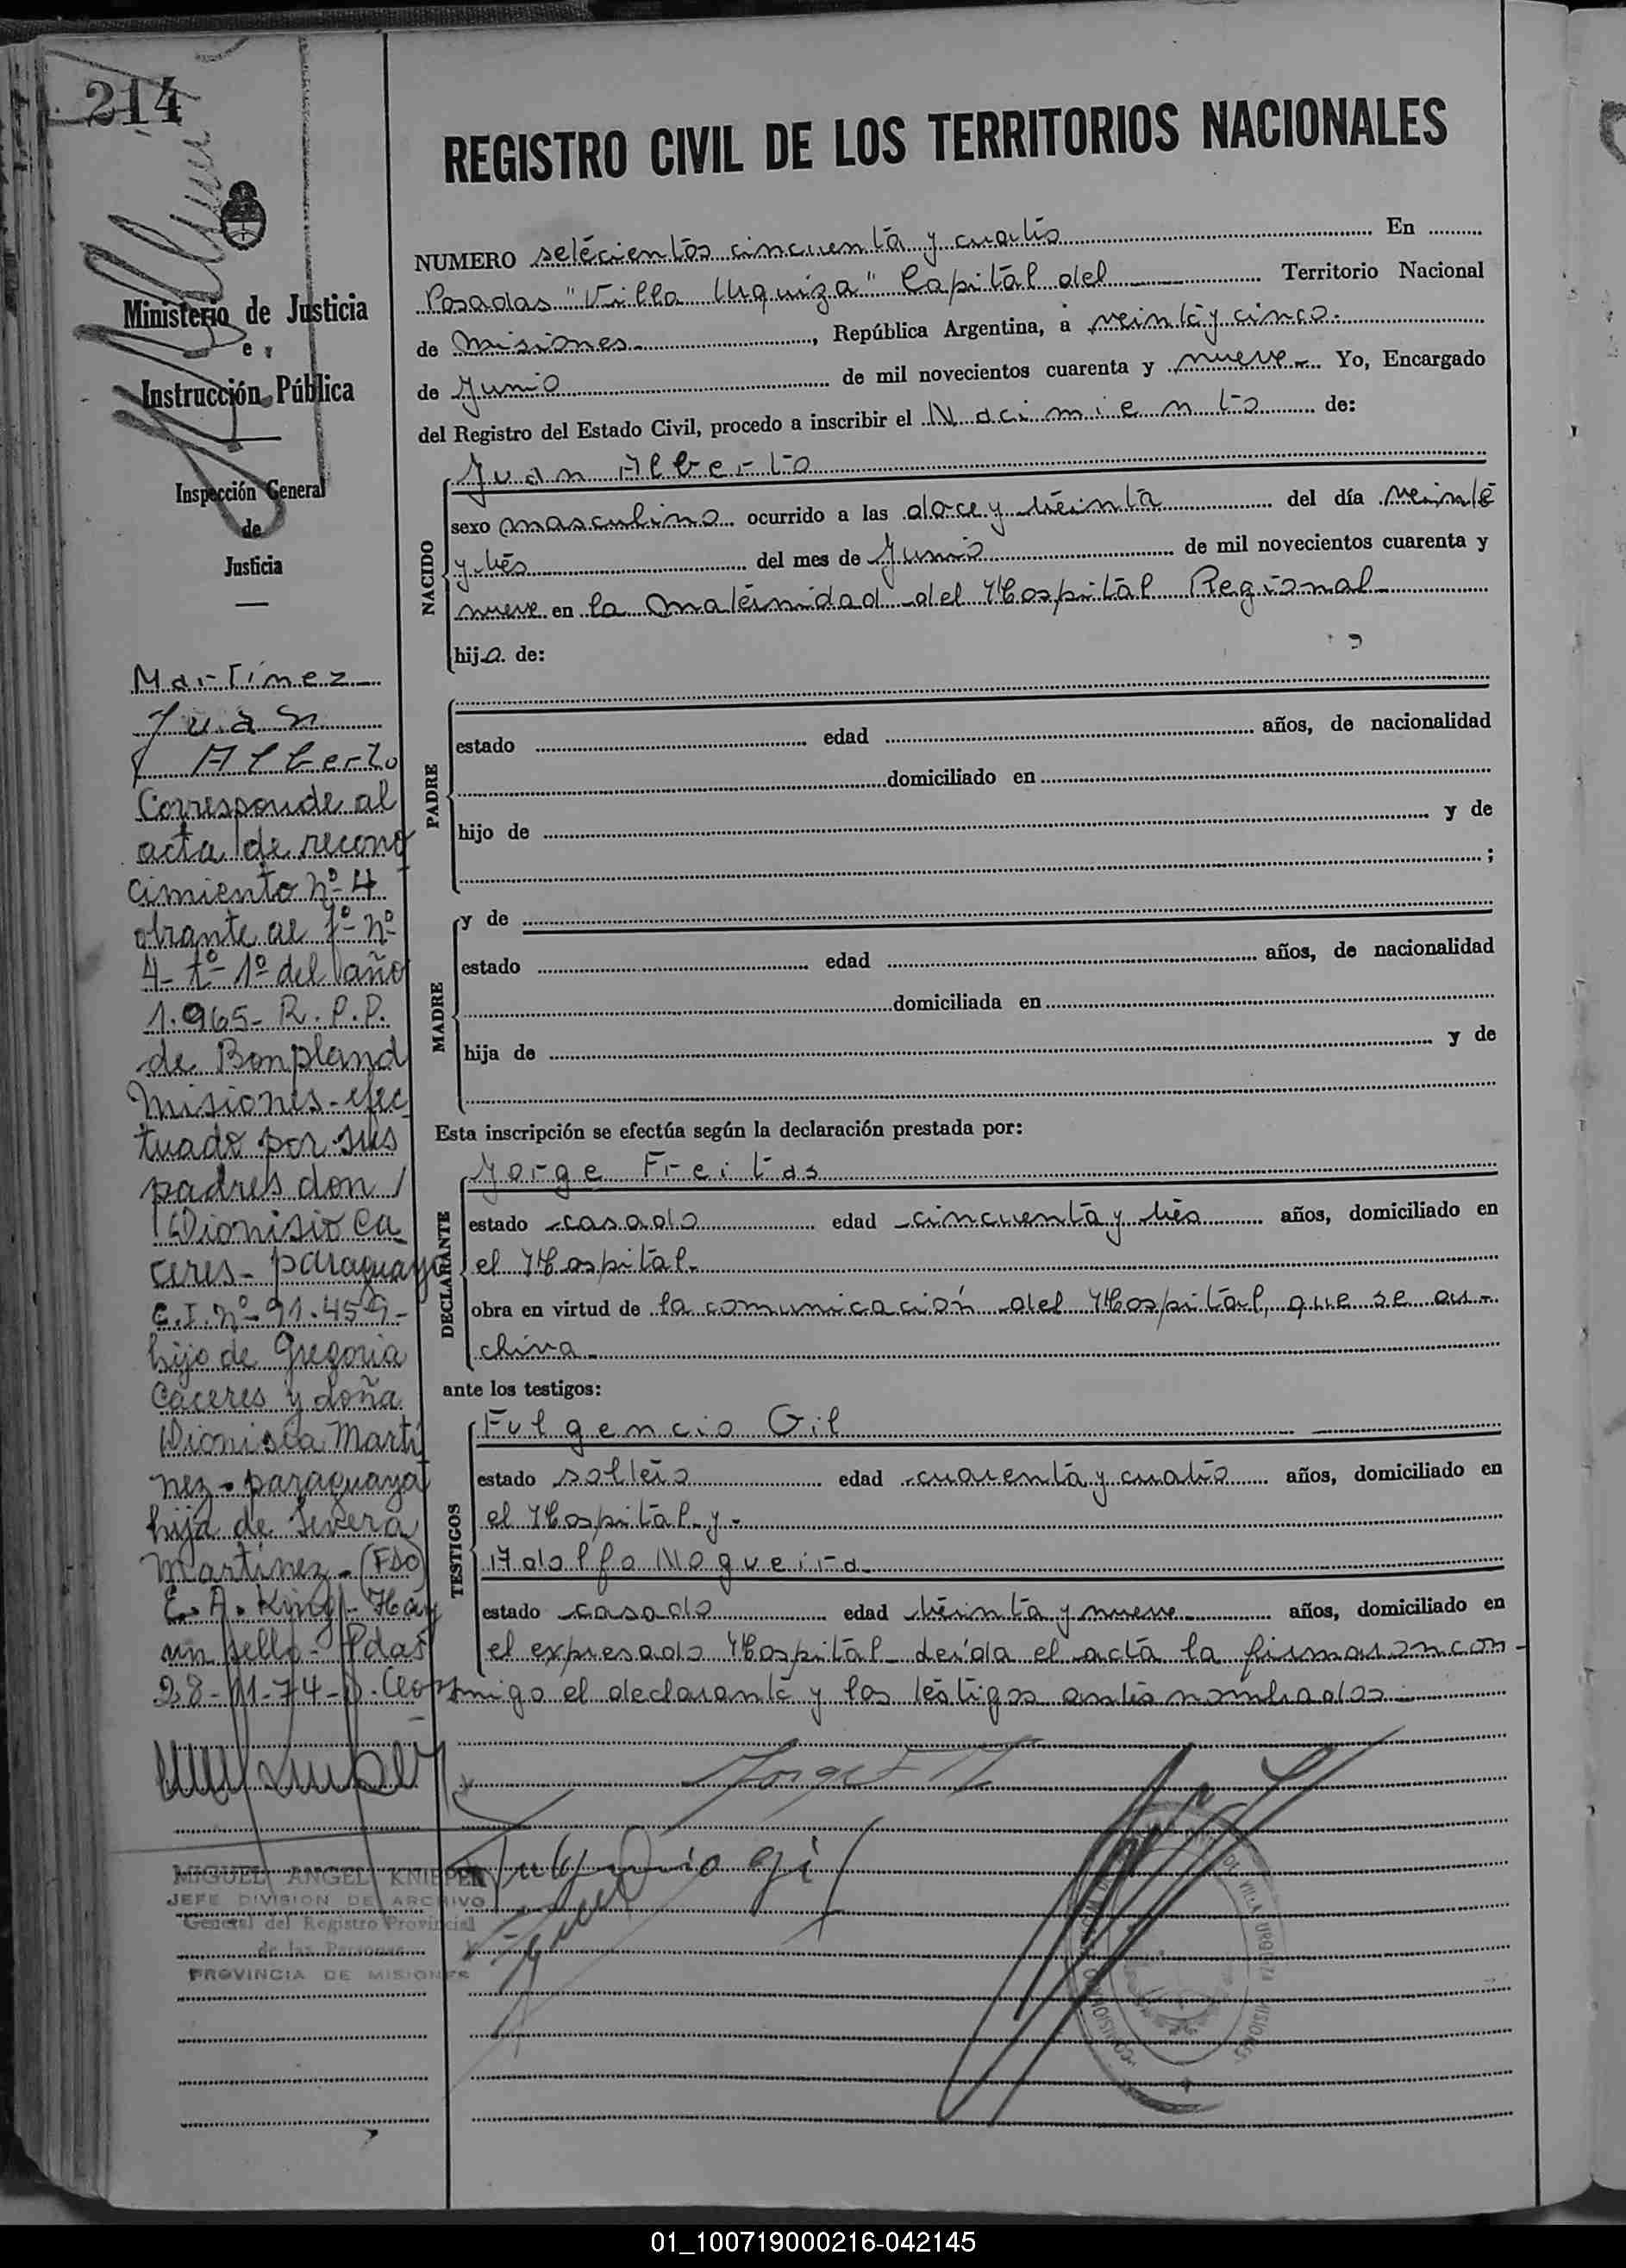 214
Ministerio de Justicia
e
Instrucción Pública
Inspección General
de
Justicia
Martínez
Juan
Alberto
Corresponde al
acta de recono
cimiento nº 4
obrante al fº nº
4- tº 1º del año
1.965- R.P.P.
de Bonpland
Misiones- efec
tuado por sus
padres don /
Dionisio Ca
ceres- paraguayo
C.I. nº 91.459-
hijo de Gregoria
Caceres y doña
Dionisia Martí
nez- paraguaya
hija de Severa
Martinez- (FDO)
E. A. King- Hay
un sello- Pdas
28-11-74-
MIGUEL ANGEL KNIEPER
JEFE DIVISION DE ARCHIVO
General del Registro Provincial
de las Personas
PROVINCIA DE MISIONES
REGISTRO CIVIL DE LOS TERRITORIOS NACIONALES
NUMERO setecientos cincuenta y cuatro En
Posadas "Villa Urquiza" Capital del Territorio Nacional
de Misiones, República Argentina, a veinte y cinco.
de Junio de mil novecientos cuarenta y nueve Yo, Encargado
del Registro del Estado Civil, procedo a inscribir el Nacimiento de:
NACIDO
Juan Alberto
sexo masculino ocurrido a las doce y treinta del día veinte
y tres del mes de Junio de mil novecientos cuarenta y
nueve en la Maternidad del Hospital Regional
hijo de:
PADRE
estado edad años, de nacionalidad
domiciliado en
hijo de y de
;
MADRE
y de
estado edad años, de nacionalidad
domiciliada en
hija de y de
Esta inscripción se efectúa según la declaración prestada por:
DECLARANTE
Jorge Freitas
estado casado edad cincuenta y tres años, domiciliado en
el Hospital-
obra en virtud de la comunicación del Hospital, que se ar-
chiva-
ante los testigos:
TESTIGOS
Fulgencio Gil
estado soltero edad cuarenta y cuatro años, domiciliado en
el Hospital- y-
Adolfo Nogueira
estado casado edad treinta y nueve años, domiciliado en
el expresado Hospital- leída el acta la firmaron con-
migo el declarante y los testigos antes nombrados
Fulgencio Gil
01_100719000216-042145